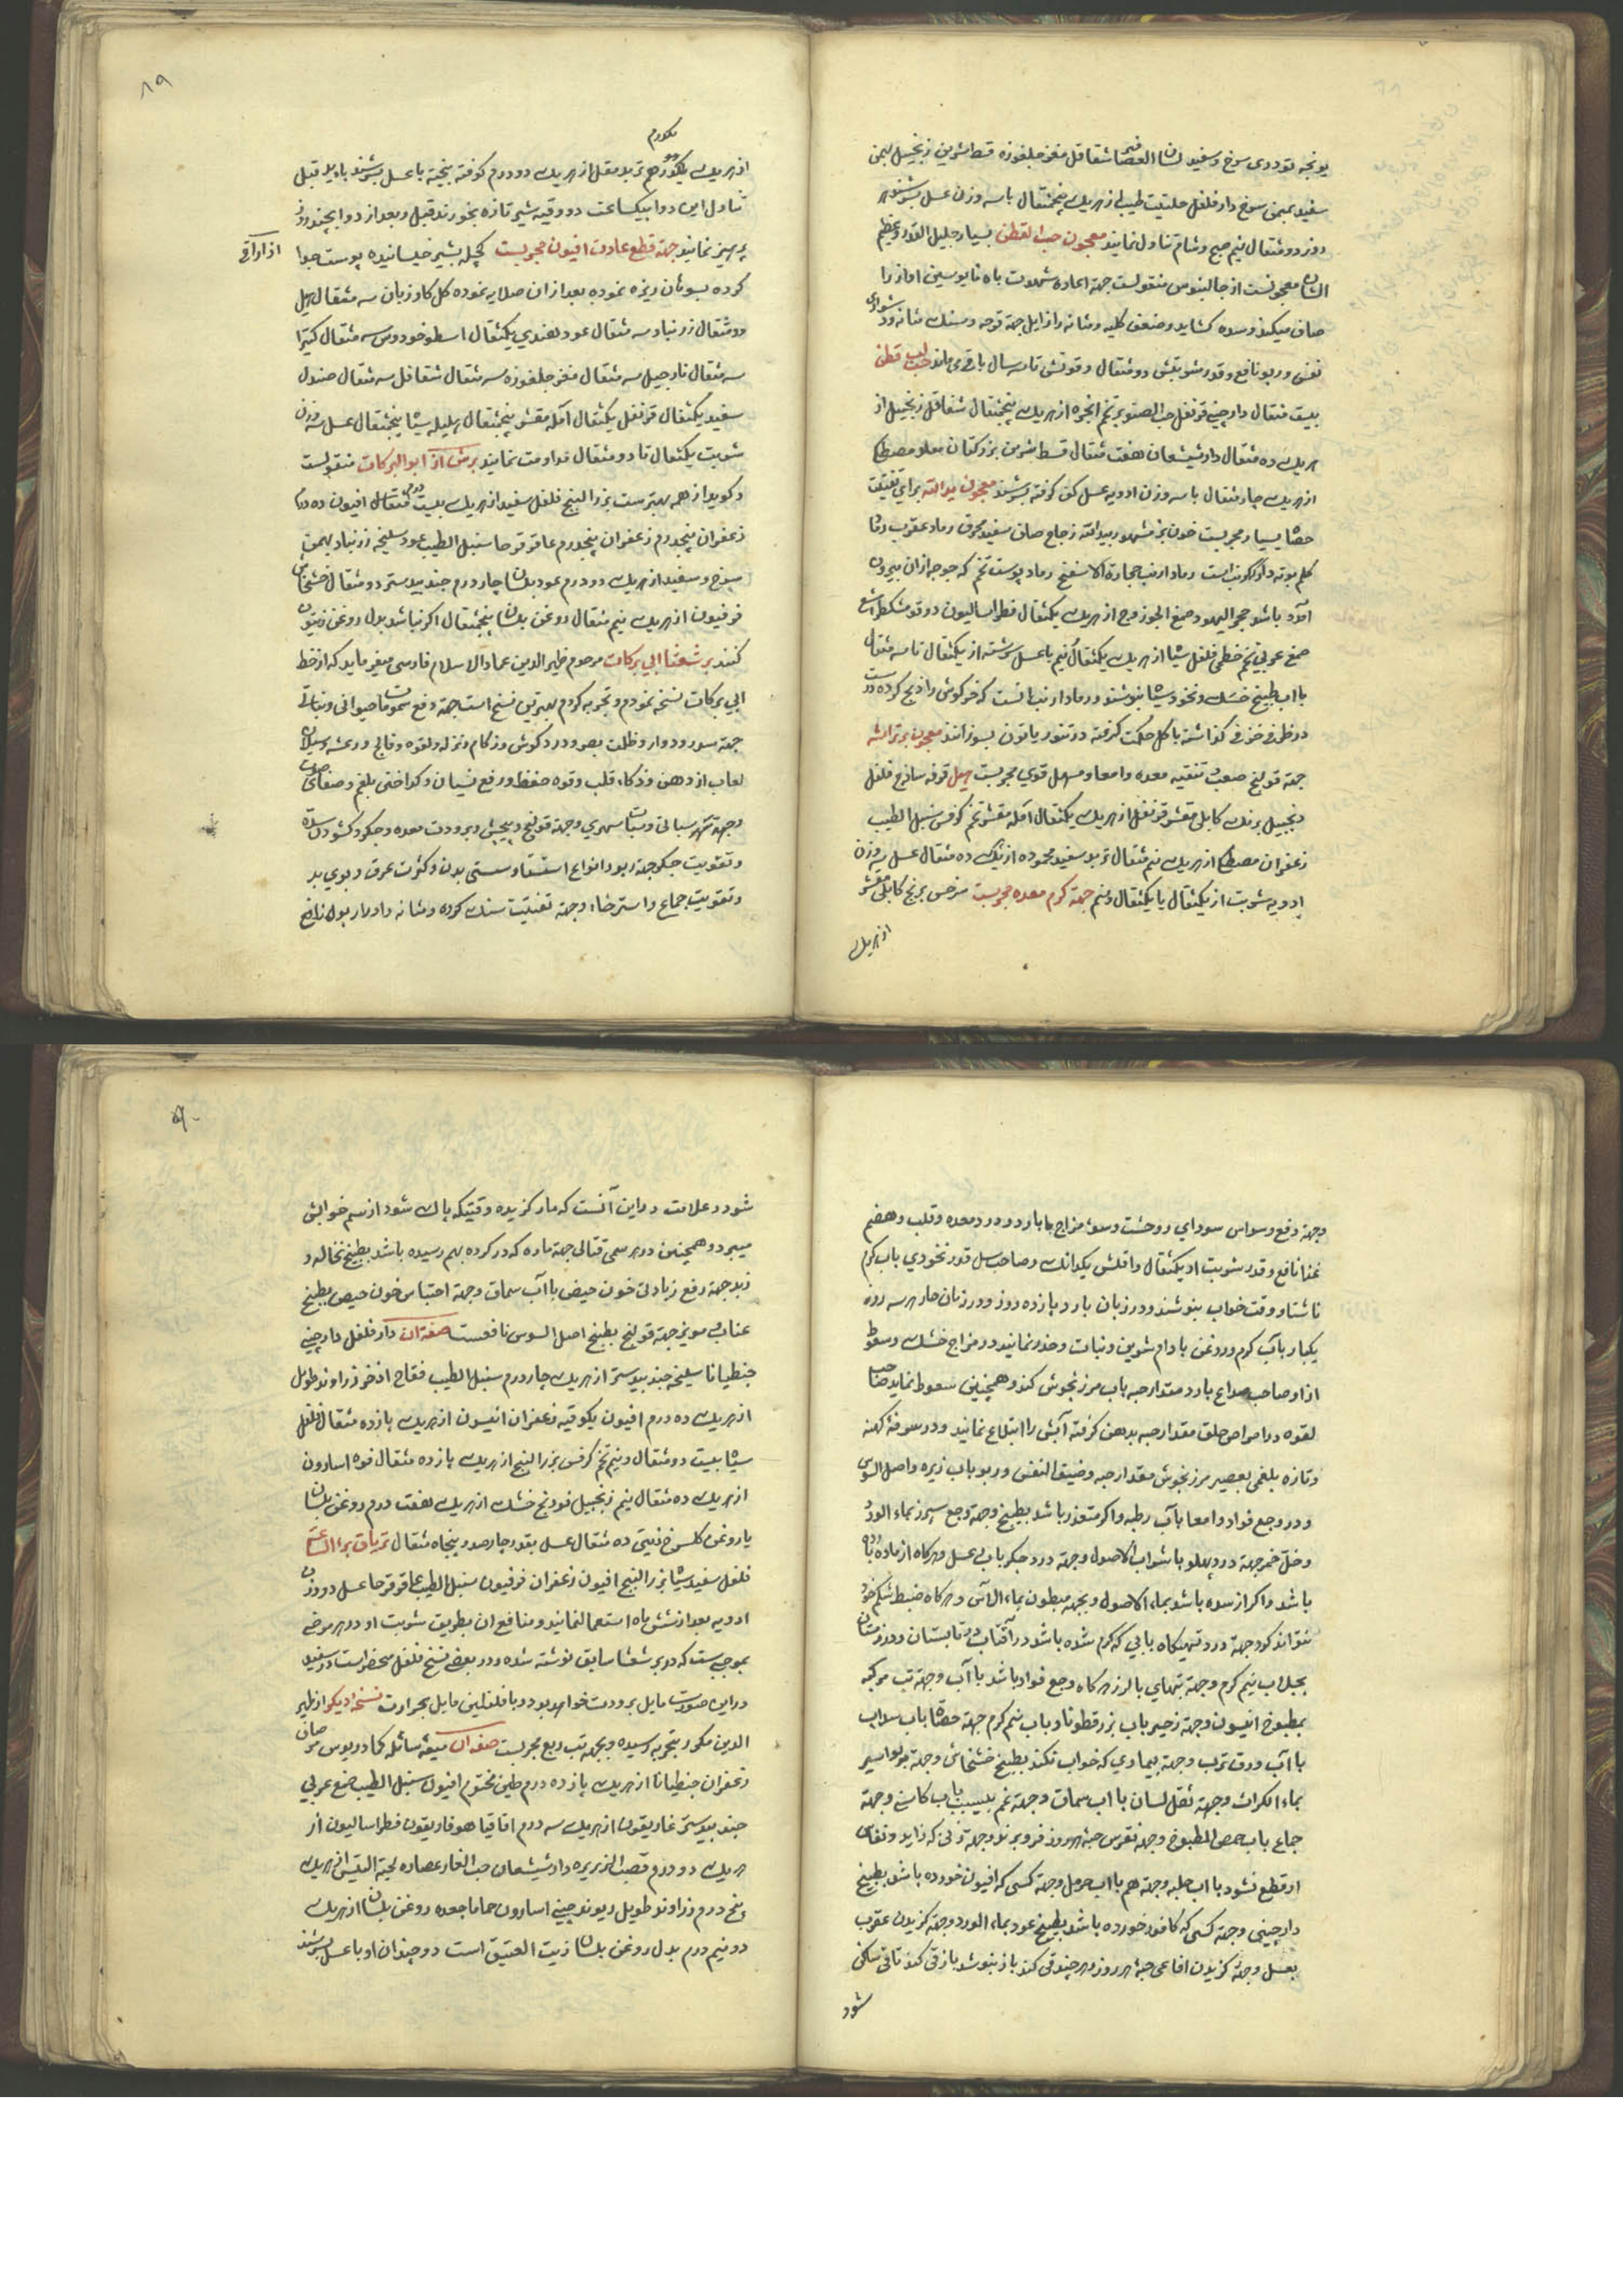 یونجه تودری سرخ و سفید لسان العصافیر شقاقل مغز جلغوزه قسط شیرین زنجبیل بهمن
سفید بهمن سرخ دارفلفل حلتیت طیب از هریک پنجمثقال با سه وزن عسل بسرشند هر
روز دو مثقال نیم صبح و شام تناول نمایند معجون حب القطن بسیار جلیل القدر و عظیم
الشان معجونست از جالینوس منقولست جهة اعاده شهوت باه مایوسین آواز را
صاف میکند و سده کشاید و ضعف کلیه و مثانه را زایل جهة قرحه و سنک مثانه و دشواری
نفس و ربو نافع و قدر شربتش دو مثقال و قوتش تا سه سال باقی ماند لب حب قطن
بیست مثقال دارچینی قرنفل حب الصنوبر تخم انجره از هریک پنجمثقال شقاقل زنجبیل از
هریک ده مثقال دارشیشعان هفت مثقال قسط شیرین بزر کتان مصطکی
از هریک چهار مثقال با سه وزن ادویه عسل کف کرفته بسرشند معجون ید الله برای تفتت
حصاة بسیار مجربست خون بز مشهور بید الله زجاج صاف سفید محرق رماد عقرب رماد
کلم بوته رماد ارنب حجارة الاسفنج رماد پوست تخم که جوجه ازان بیرون
آمده باشد حجر الیهود صمغ الجوز وج از هریک یکمثقال فطراسالیون دوقو مشکطرامشیع
صمغ عربی تخم خطمی فلفل سیاه از هریک یکمثقال و نیم با عسل سرشته از یکمثقال تا سه مثقال
با آب طبیخ خسک و نخود سیاه بنوشند و رماد ارنب آنست که خرکوش را ذبح کرده درست
در ظرف خزفی کذاشته با کل حکمت کرفته در تنور یا تون بسوزانند معجون
جهة قولنج صعب و تنقیه معده و امعا و مسهل قوی مجربست هیل قرفه ساذج فلفل
زنجبیل برنک کابلی مقشر قرنفل از هریک یکمثقال آمله مقشر تخم کرفس سنبل الطیب
زعفران مصطکی از هریک نیم مثقال تربد سفید محموده از هریک ده مثقال عسل سه وزن
ادویه شربت از یکمثقال یا یکمثقال و نیم جهة کرم معده مجربست سرخس برنج کابلی مقشر
از هریک
۸۹
یکدرم
از هریک یکدرم تربد مقل از هریک دو درم کوفته بیخته با عسل بسرشند باید قبل
تناول این دوا بیکساعت دو وقیه شیر تازه بخورند قبل و بعد از دوا چند روز
پرهیز نمایند جهة قطع عادت افیون مجربست کچله بشیر خیسانیده پوست جدا
اذاراقی
کرده بسوهان ریزه نموده بعد ازان صلایه نموده کل کاو زبان سه مثقال هیل
دو مثقال زرنباد سه مثقال عود هندی یکمثقال اسطوخودوس سه مثقال کتیرا
سه مثقال نارجیل سه مثقال مغز جلغوزه سه مثقال شقاقل سه مثقال صندل
سفید یکمثقال قرنفل یکمثقال آمله مقشر پنجمثقال هلیله سیاه پنجمثقال عسل سه وزن
شربت یکمثقال تا دو مثقال مداومت نمایند برش از ابو البرکات منقولست
و کوید از همه بهتر ست بزر البنج فلفل سفید از هریک بیست مثقال افیون ده درم
زعفران پنجدرم زعفران پنجدرم عاقرقرحا سنبل الطیب عود سلیخه زرنباد بهمن
سرخ و سفید از هریک دو درم عود بلسان چهار درم جند بیدستر دو مثقال خشخاش
فرفیون از هریک نیم مثقال روغن بلسان پنجمثقال اکر نباشد بدل روغن زیتون
کنند برشعثا ابی برکات مرحوم ظهیر الدین عماد الاسلام فارسی میفرماید که از خط
ابی برکات نسخه نمودم و تجربه کردم بهترین نسخ است جهة دفع سموم حیوانی و نباتی
جهة سدر و دوار و ظلمت بصر و درد کوش و زکام و نزله و لقوه و فالج و رعشه و سیلان
لعاب از دهن و ذکاء قلب و قوه حفظ و رفع نسیان و کداختن بلغم و صفای صوت
و جهة سهر سباتی و سبات سهری و جهة قولنج و پیچش و برودت معده و جکر و کشودن سده
و تقویت جکر جهة ربو و انواع استسقا و سستی بدن و کثرت عرق و بوی بد
و تقویت جماع و استرخاء و جهة تفتیت سنک کرده و مثانه و ادرار بول نافع
و جهة دفع وسواس سوداوی و وحشت و سوء مزاج بارد و درد معده و قلب و هضم
غذا نافع و قدر شربت او یکمثقال و اقلش یکدانک و صاحب سل قدر نخودی باب کرم
ناشتا و وقت خواب بنوشند و در زمان بارد پازده روز و در زمان حار هر سه روز
یکبار باب کرم و روغن بادام شیرین و نبات و حذر نمایند در مزاج خشک و سعوط
از او صاحب صداع بارد مقدار حبه باب مرزنجوش کند و همچنین سعوط نماید صاحب
لقوه و در امراض حلق مقدار حبه بدهن کرفته آبش را ابتلاع نمایند و در سرفه کهنه
و تازه بلغمی بعصیر مرزنجوش مقدار حبه و ضیق النفس و ربو باب زیره و اصل السوس
و در وجع فواد و امعا باب رطبه و اکر متعذر باشد بطبیخ و جهة وجع سپرز بماء الورد
و خل خمر جهة درد پهلو با شراب الاصول و جهة درد جکر باب عسل و هرکاه از ماده بارده
باشد و اکر از سده باشد بماء الاصول و بجهة مبطون بماء الآس و هرکاه ضبط شکم خود
نتواند کرد جهة درد تهیکاه بابی که کرم شده باشد در آفتاب در تابستان و در زمستان
بجلاب نیم کرم و جهة تبهای بالرز هرکاه وجع فواد باشد با آب و جهة تب مرکبه
بمطبوخ انیسون و جهة زحیر باب بزر قطونا و باب نیم کرم جهة حصاة باب سداب
با آب ورق ترب و جهة بیماری که خواب نکند بطبیخ خشخاش و جهة بواسیر
بماء الکراث و جهة ثقل لسان با آب سماق و جهة غم بیسبب باب کاسنی و جهة
جماع باب حمص المطبوخ و جهة نقرس حبه هر روز فرو برند و جهة زنی که زاید و نفاس
او قطع نشود با آب حلبه و جهة هم با آب حرمل و جهة کسی که افیون خورده باشد بطبیخ
دارچینی و جهة کسی که کافور خورده باشد بطبیخ عود بماء الورد و جهة کزیدن عقرب
بعسل و جهة کزیدن افاعی حبه هر روز و هر چند قی کند باز بنوشد باز قی کند تا قی ساکن
شود
۹۰
شود و علامت در این آنست که مار کزیده وقتیکه پاک شود از سم خوابش
میبرد و همچنین در هر سمی قتالی جهة ماده که در کرده بهم رسیده باشد بطبیخ نخاله و
زبد جهة رفع زیادتی خون حیض با آب سماق و جهة احتباس خون حیض بطبیخ
عناب و مویز جهة قولنج بطبیخ اصل السوس نافعست صفة ان دارفلفل دارچینی
جنطیانا سلیخه جند بیدستر از هریک چهار درم سنبل الطیب فقاح اذخر زراوند طویل
از هریک ده درم افیون یکوقیه زعفران انیسون از هریک پازده مثقال فلفل
سیاه بیست دو مثقال و نیم تخم کرفس بزر البنج از هریک پازده مثقال فوه اسارون
از هریک ده مثقال نیم زنجبیل فودنج خشک از هریک هفت درم روغن بلسان
یا روغن کلسرخ زیتی ده مثقال عسل بقدر چهارصد و پنجاه مثقال تریاق برء الساعة
فلفل سفید سیاه بزر البنج افیون زعفران فرفیون سنبل الطیب عاقرقرحا عسل دو وزن
ادویه بعد از شش ماه استعمال نمایند و منافع ان بطریق شربت او در هر مرضی
بموجبیست که در برشعثا سابق نوشته شده و در بعضی نسخ فلفل منحصر است در سفید
در این صورت مایل ببرودت خواهد بود و با فلفلین مایل بحرارت نسخه دیکر از ظهیر
الدین مذکور بتجربه رسیده و بجهة تب ربع مجربست صفة ان میعه سائله کمادریوس مر صاف
زعفران جنطیانا از هریک پازده درم طین مختوم افیون سنبل الطیب صمغ عربی
جند بیدستر غاریقون از هریک سه درم اقاقیا هوفاریقون فطراسالیون از
هریک دو درم قصب الذریره دارشیشعان حب الغار عصاره لحیة التیس از هریک
پنج درم زراوند طویل ریوند چینی اسارون حماما جعده روغن بلسان از هریک
دو نیم درم بدل روغن بلسان زیت العتیق است دو چندان او با عسل بسرشند